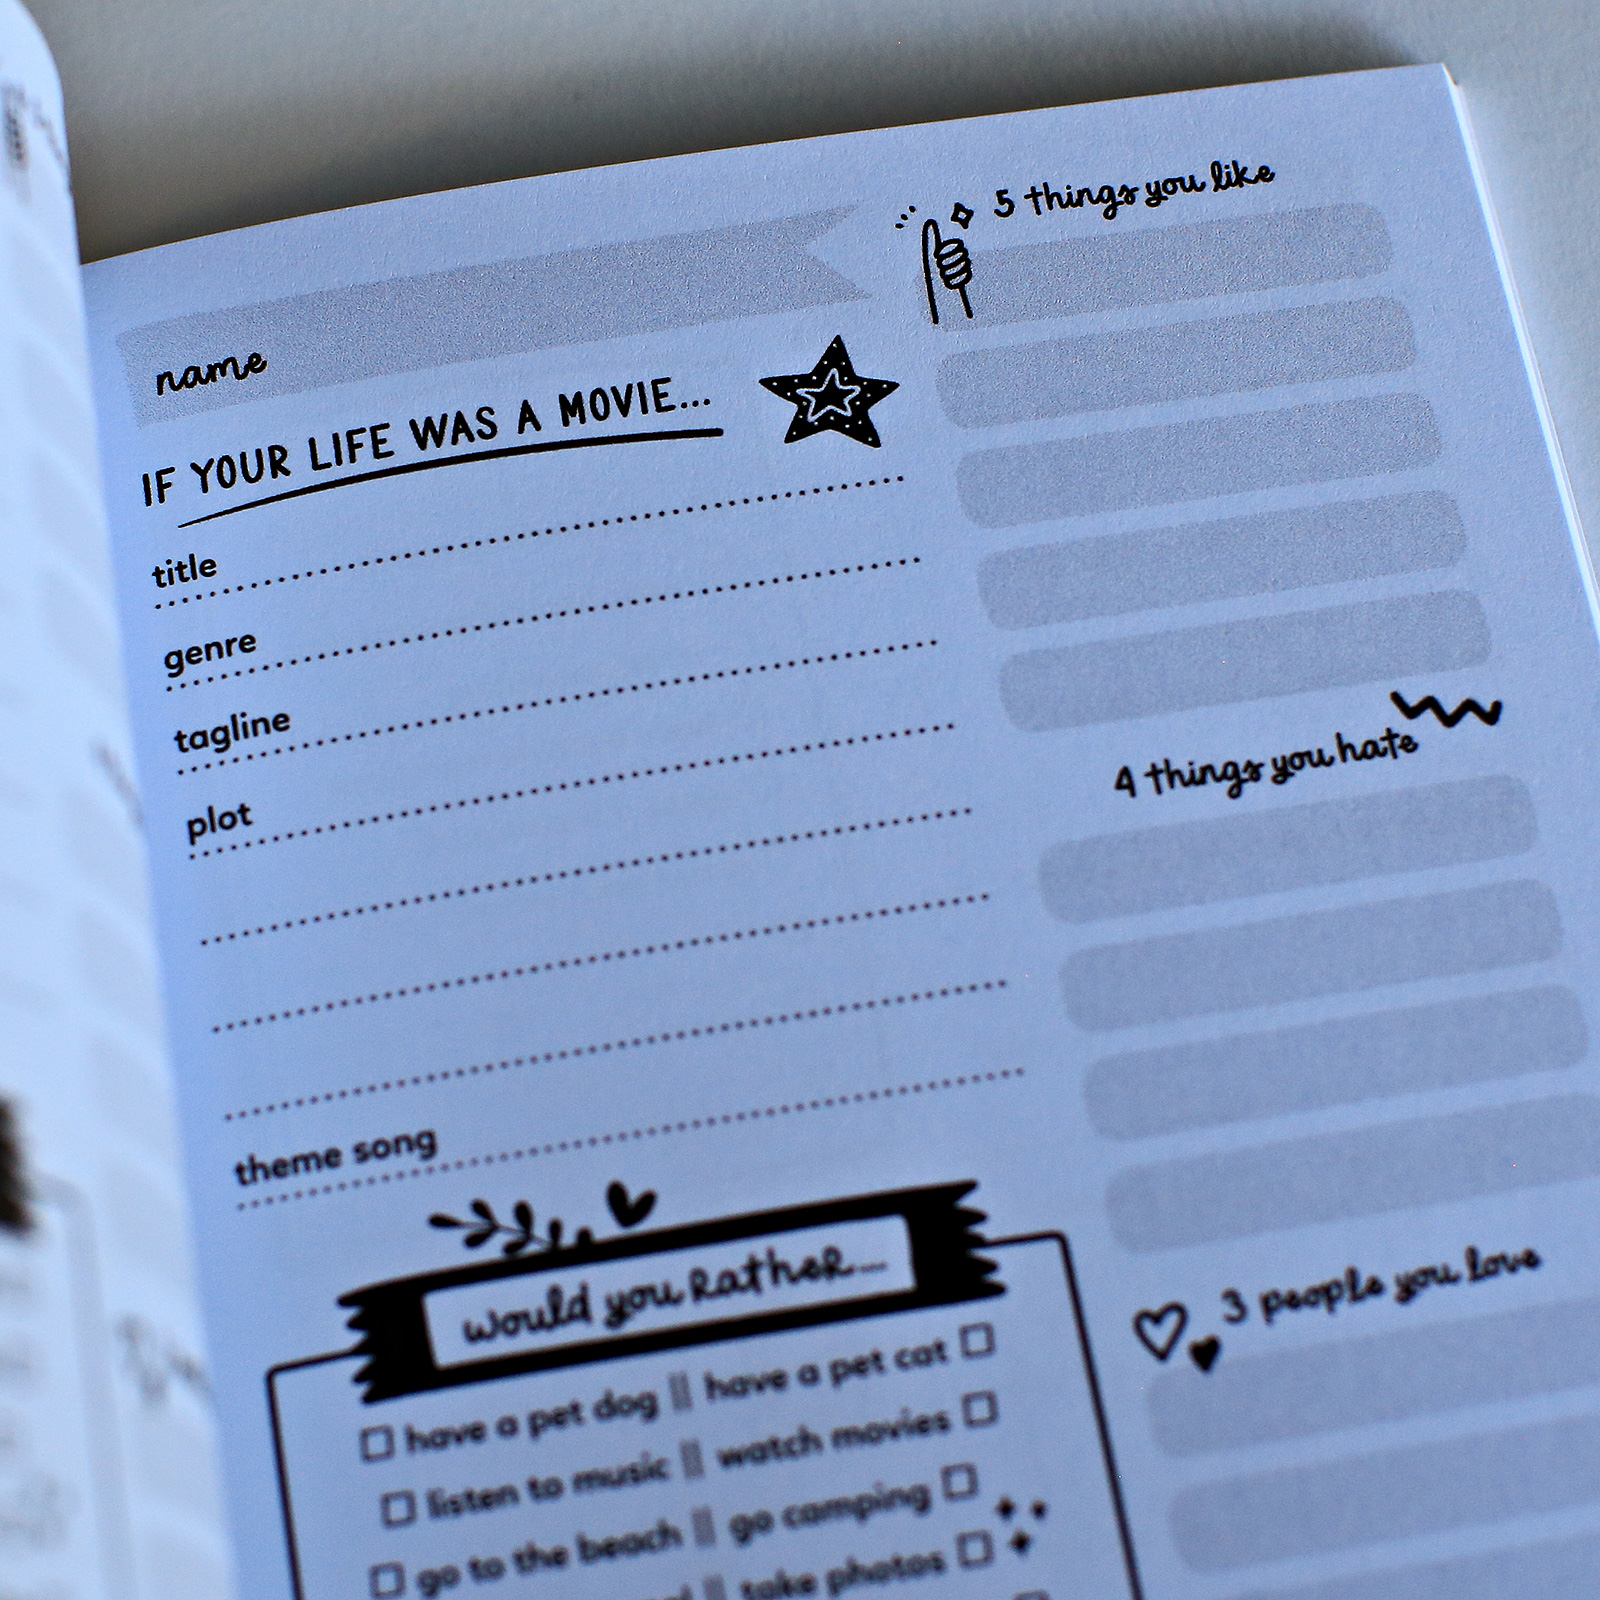 name
IF YOUR LIFE WAS A MOVIE...
title
genre
tagline
plot
theme song
would you Rather...
have a pet dog || have a pet cat
listen to music || watch movies
go to the beach || go camping
|| take photos
5 things you like
4 things you hate
3 people you love